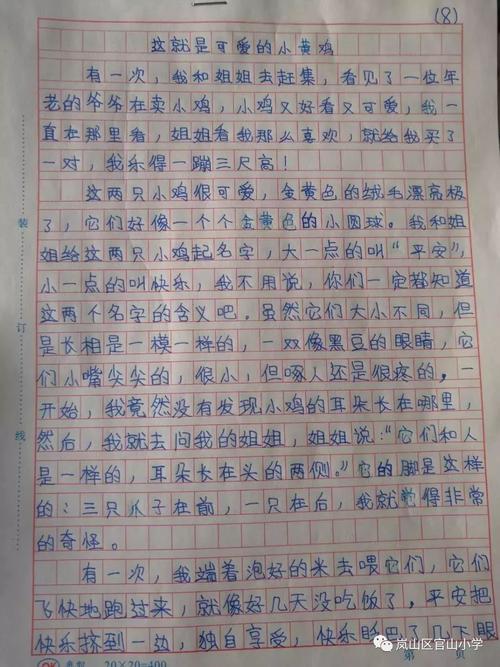 (8)
这就是可爱的小黄鸡
有一次，我和姐姐去赶集，看见了一位年
老的爷爷在卖小鸡，小鸡又好看又可爱，我一
直在那里看，姐姐看我那么喜欢，就给我买了
一对，我乐得一蹦三尺高！
这两只小鸡很可爱，金黄色的绒毛漂亮极
了，它们好像一个个金黄色的小圆球。我和姐
姐给这两只小鸡起名字，大一点的叫“平安”，
小一点的叫快乐，我不用说，你们一定都知道
这两个名字的含义吧。虽然它们大小不同，但
是长相是一模一样的，一双像黑豆的眼睛，它
们小嘴尖尖的，很小，但啄人还是很疼的。一
开始，我竟然没有发现小鸡的耳朵长在哪里，
然后，我就去问我的姐姐，姐姐说：“它们和人
是一样的，耳朵长在头的两侧。”它的脚是这样
的：三只爪子在前，一只在后，我就觉得非常
的奇怪。
有一次，我端着泡好的米去喂它们，它们
飞快地跑过来，就像好几天没吃饭了。平安把
快乐挤到一边，独自享受，快乐眨巴了几下眼
装
订
线
20×20=400
第 页
岚山区官山小学